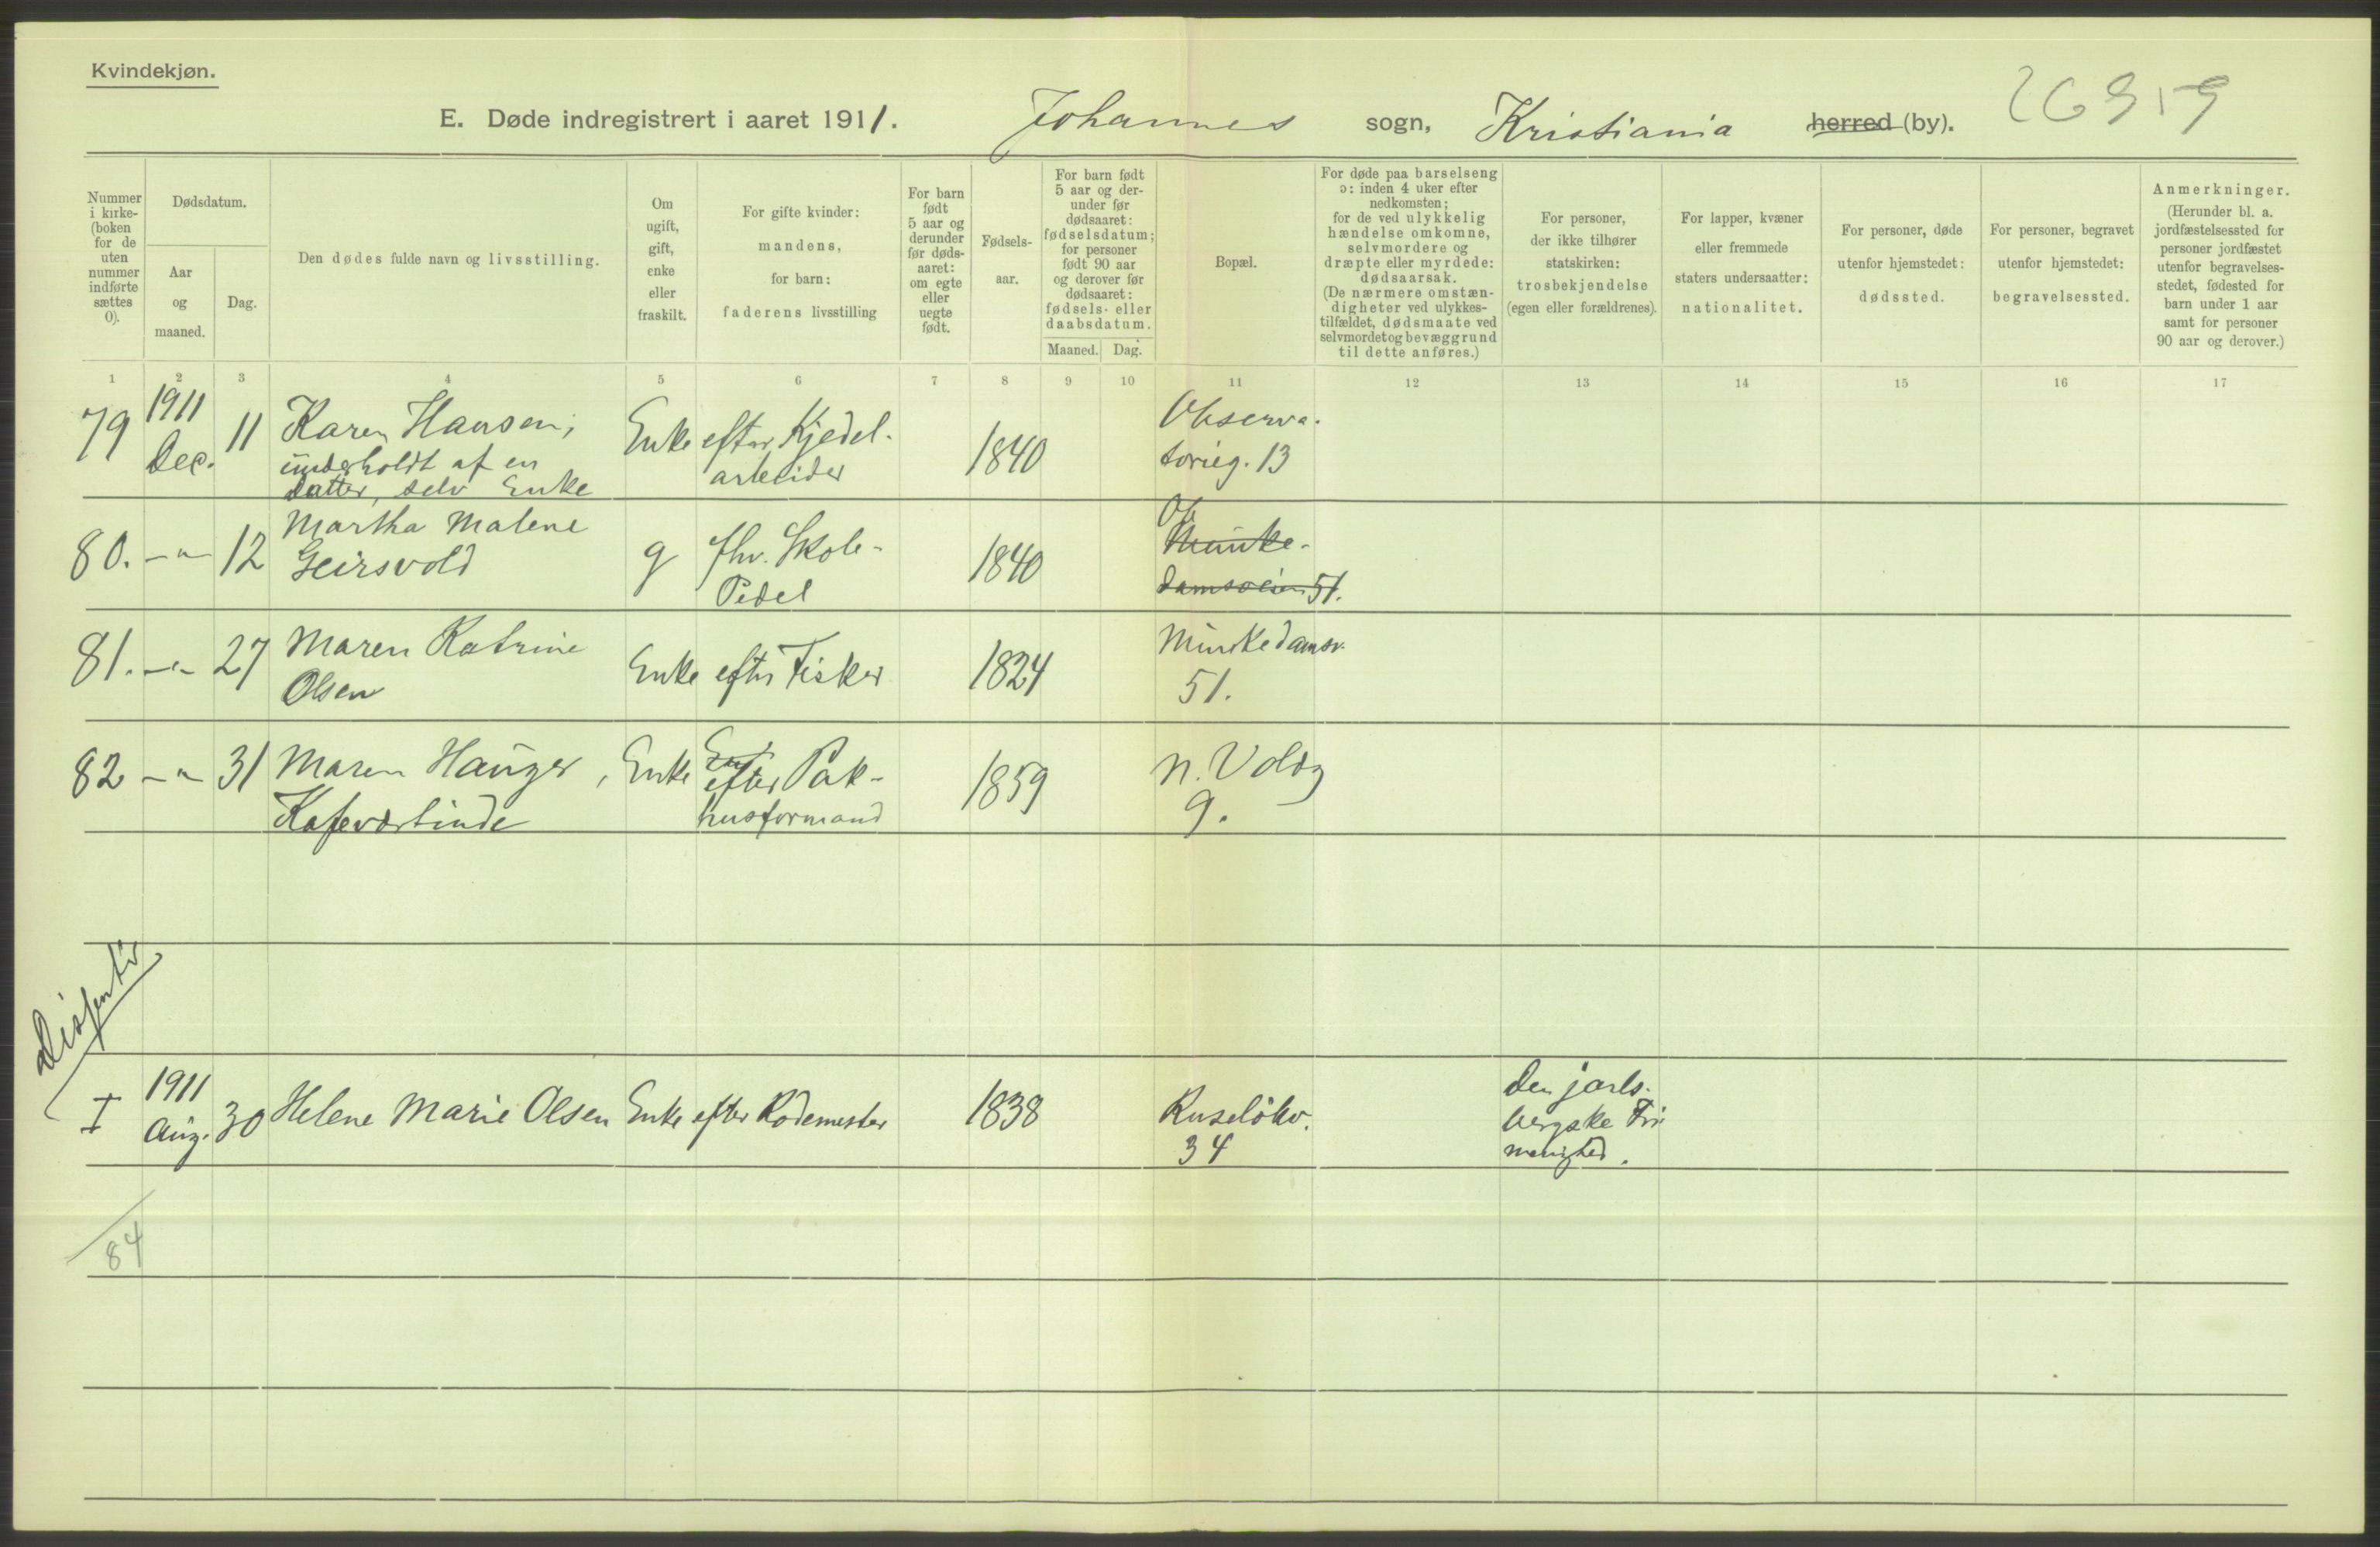 Kvindekjøn.
E. Døde indregistrert i aaret 1911. Johannes sogn, Kristiania herred (by).
Nummer i kirke- (boken for de uten nummer indførte sættes 0).
Dødsdatum.
Aar og maaned.
Dag.
Den dødes fulde navn og livsstilling.
Om ugift, gift, enke eller fraskilt.
For gifte kvinder: mandens, for barn: faderens livsstilling
For barn født 5 aar og derunder før døds- aaret: om egte eller uegte født.
Fødsels- aar.
For barn født 5 aar og der- under før dødsaaret: fødselsdatum; for personer født 90 aar og derover før dødsaaret: fødsels- eller daabsdatum.
Maaned. Dag.
Bopæl.
For døde paa barselseng ɔ: inden 4 uker efter nedkomsten; for de ved ulykkelig hændelse omkomne, selvmordere og dræpte eller myrdede: dødsaarsak. (De nærmere omstæn- digheter ved ulykkes- tilfældet, dødsmaate ved selvmordet og bevæggrund til dette anføres.)
For personer, der ikke tilhører statskirken: trosbekjendelse (egen eller forældrenes).
For lapper, kvæner eller fremmede staters undersaatter: nationalitet.
For personer, døde utenfor hjemstedet: dødssted.
For personer, begravet utenfor hjemstedet: begravelsessted.
Anmerkninger. (Herunder bl. a. jordfæstelsessted for personer jordfæstet utenfor begravelses- stedet, fødested for barn under 1 aar samt for personer 90 aar og derover.)
1 2 3 4 5 6 7 8 9 10 11 12 13 14 15 16 17
79 1911 Dec. 11 Karen Hansen, Enke efter Kjedel- 1840 Observa-
underholdt af en arbeider torieg. 13
datter, selv Enke
80. -"- 12 Martha Malene g fhv. Skole- 1840 Munke-
Geirsvold Pedel damsveien 51.
81. -"- 27 Maren Katrine Enke efter Fisker 1824 Munkedamsv.
Olsen 51.
82 -"- 31 Maren Hauger, Enke efter Pak- 1859 N. Voldg
Kafeværtinde husformand 9.
Dissenter
I 1911 Aug. 30 Helene Marie Olsen Enke efter Rodemester 1838 Ruseløkv. 34 Den jarls-
bergske Fri
menighed.
84